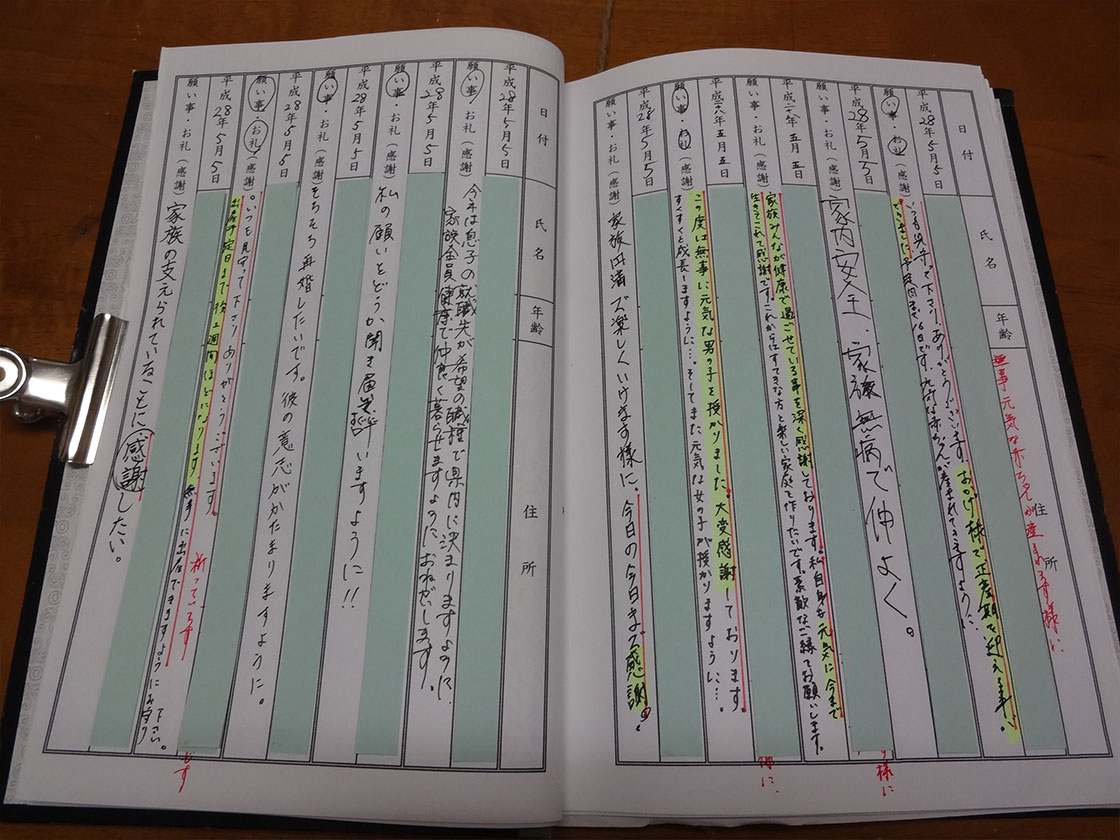 日付
氏名
年齢
住所
平成28年5月5日
願い事・お礼(感謝)
いつも見守って下さり、ありがとうございます。おかげ様で正産期を迎える事が
できました。予定日
無事元気な赤ちゃんが産まれます様に
平成28年5月5日
願い事・お礼(感謝)
家内安全、家族無病で仲よく。
平成二八年五月五日
願い事・お礼(感謝)
家族みんなが健康で過ごせている事を深く感謝しております。私自身も元気に今まで
生きてこれて感謝です。これからはすてきな方と楽しい家庭を作りたいです。素敵なご縁をお願いします。
平成二八年五月五日
願い事・お礼(感謝)
この度は無事に元気な男の子を授かりました。大変感謝しております。
すくすくと成長しますように…。そしてまた元気な女の子が授かりますように…。
平成28年5月5日
願い事・お礼(感謝)
家族円満で楽しくいけます様に、今日の今日まで感謝。
様に
様に
日付
氏名
年齢
住所
平成28年5月5日
願い事・お礼(感謝)
今年は息子の就職先が希望の職種で県内に決まりますように
家族全員健康で仲良く暮らせますように、おねがいします。
平成28年5月5日
願い事・お礼(感謝)
私の願いをどうか聞き届けて下さいますように!!
平成28年5月5日
願い事・お礼(感謝)
そろそろ再婚したいです。彼の意志がかたまりますように。
平成28年5月5日
願い事・お礼(感謝)
いつも見守って下さりありがとうございます。
出産予定日まで後2週間ほどになります。無事に出産できますようにお守り下さい。
祈っています
平成28年5月5日
願い事・お礼(感謝)
家族の支えられていることに感謝したい。
ます